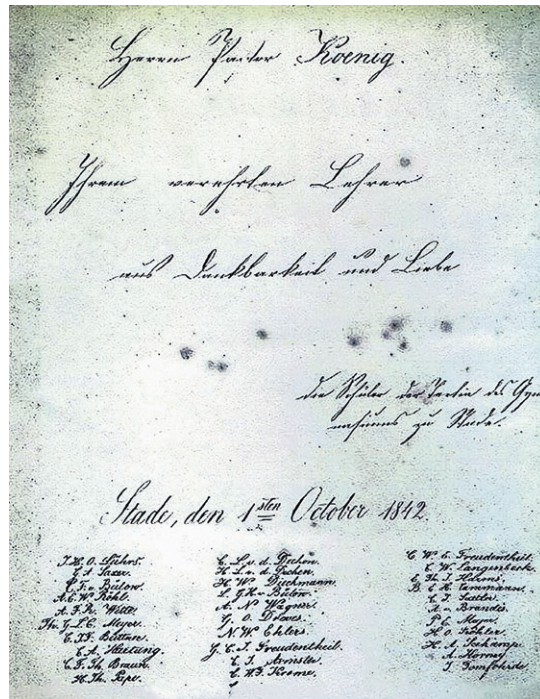 Herrn Pastor Koenig.
Ihrem verehrten Lehrer
aus Dankbarkeit und Liebe
die Schüler der Tertia des Gym
nasiums zu Stade.
Stade, den 1sten October 1842.
J. H. O. Lührs.
C. F. v. Bülow.
A. C. W. Röhl.
A. F. Fr. Witte.
Th. G. L. C. Meyer.
C. A. Hartung.
C. F. Th. Braun.
H. Th. Pape.
C. L. v. d. Decken.
H. L. v. d. Decken.
H. W. Dieckmann.
L. G. H. v. Bülow.
A. N. Wagner.
G. O. Drewes.
N. W. Ehlers.
G. C. J. Freudentheil.
C. H. F. Krome.
C. W. G. Freudentheil.
C. W. Langenbeck.
C. F. Sattler.
A. v. Brandis.
P. C. Meyer.
H. O. Köhler.
A. Horney
J. Tomfohrde.